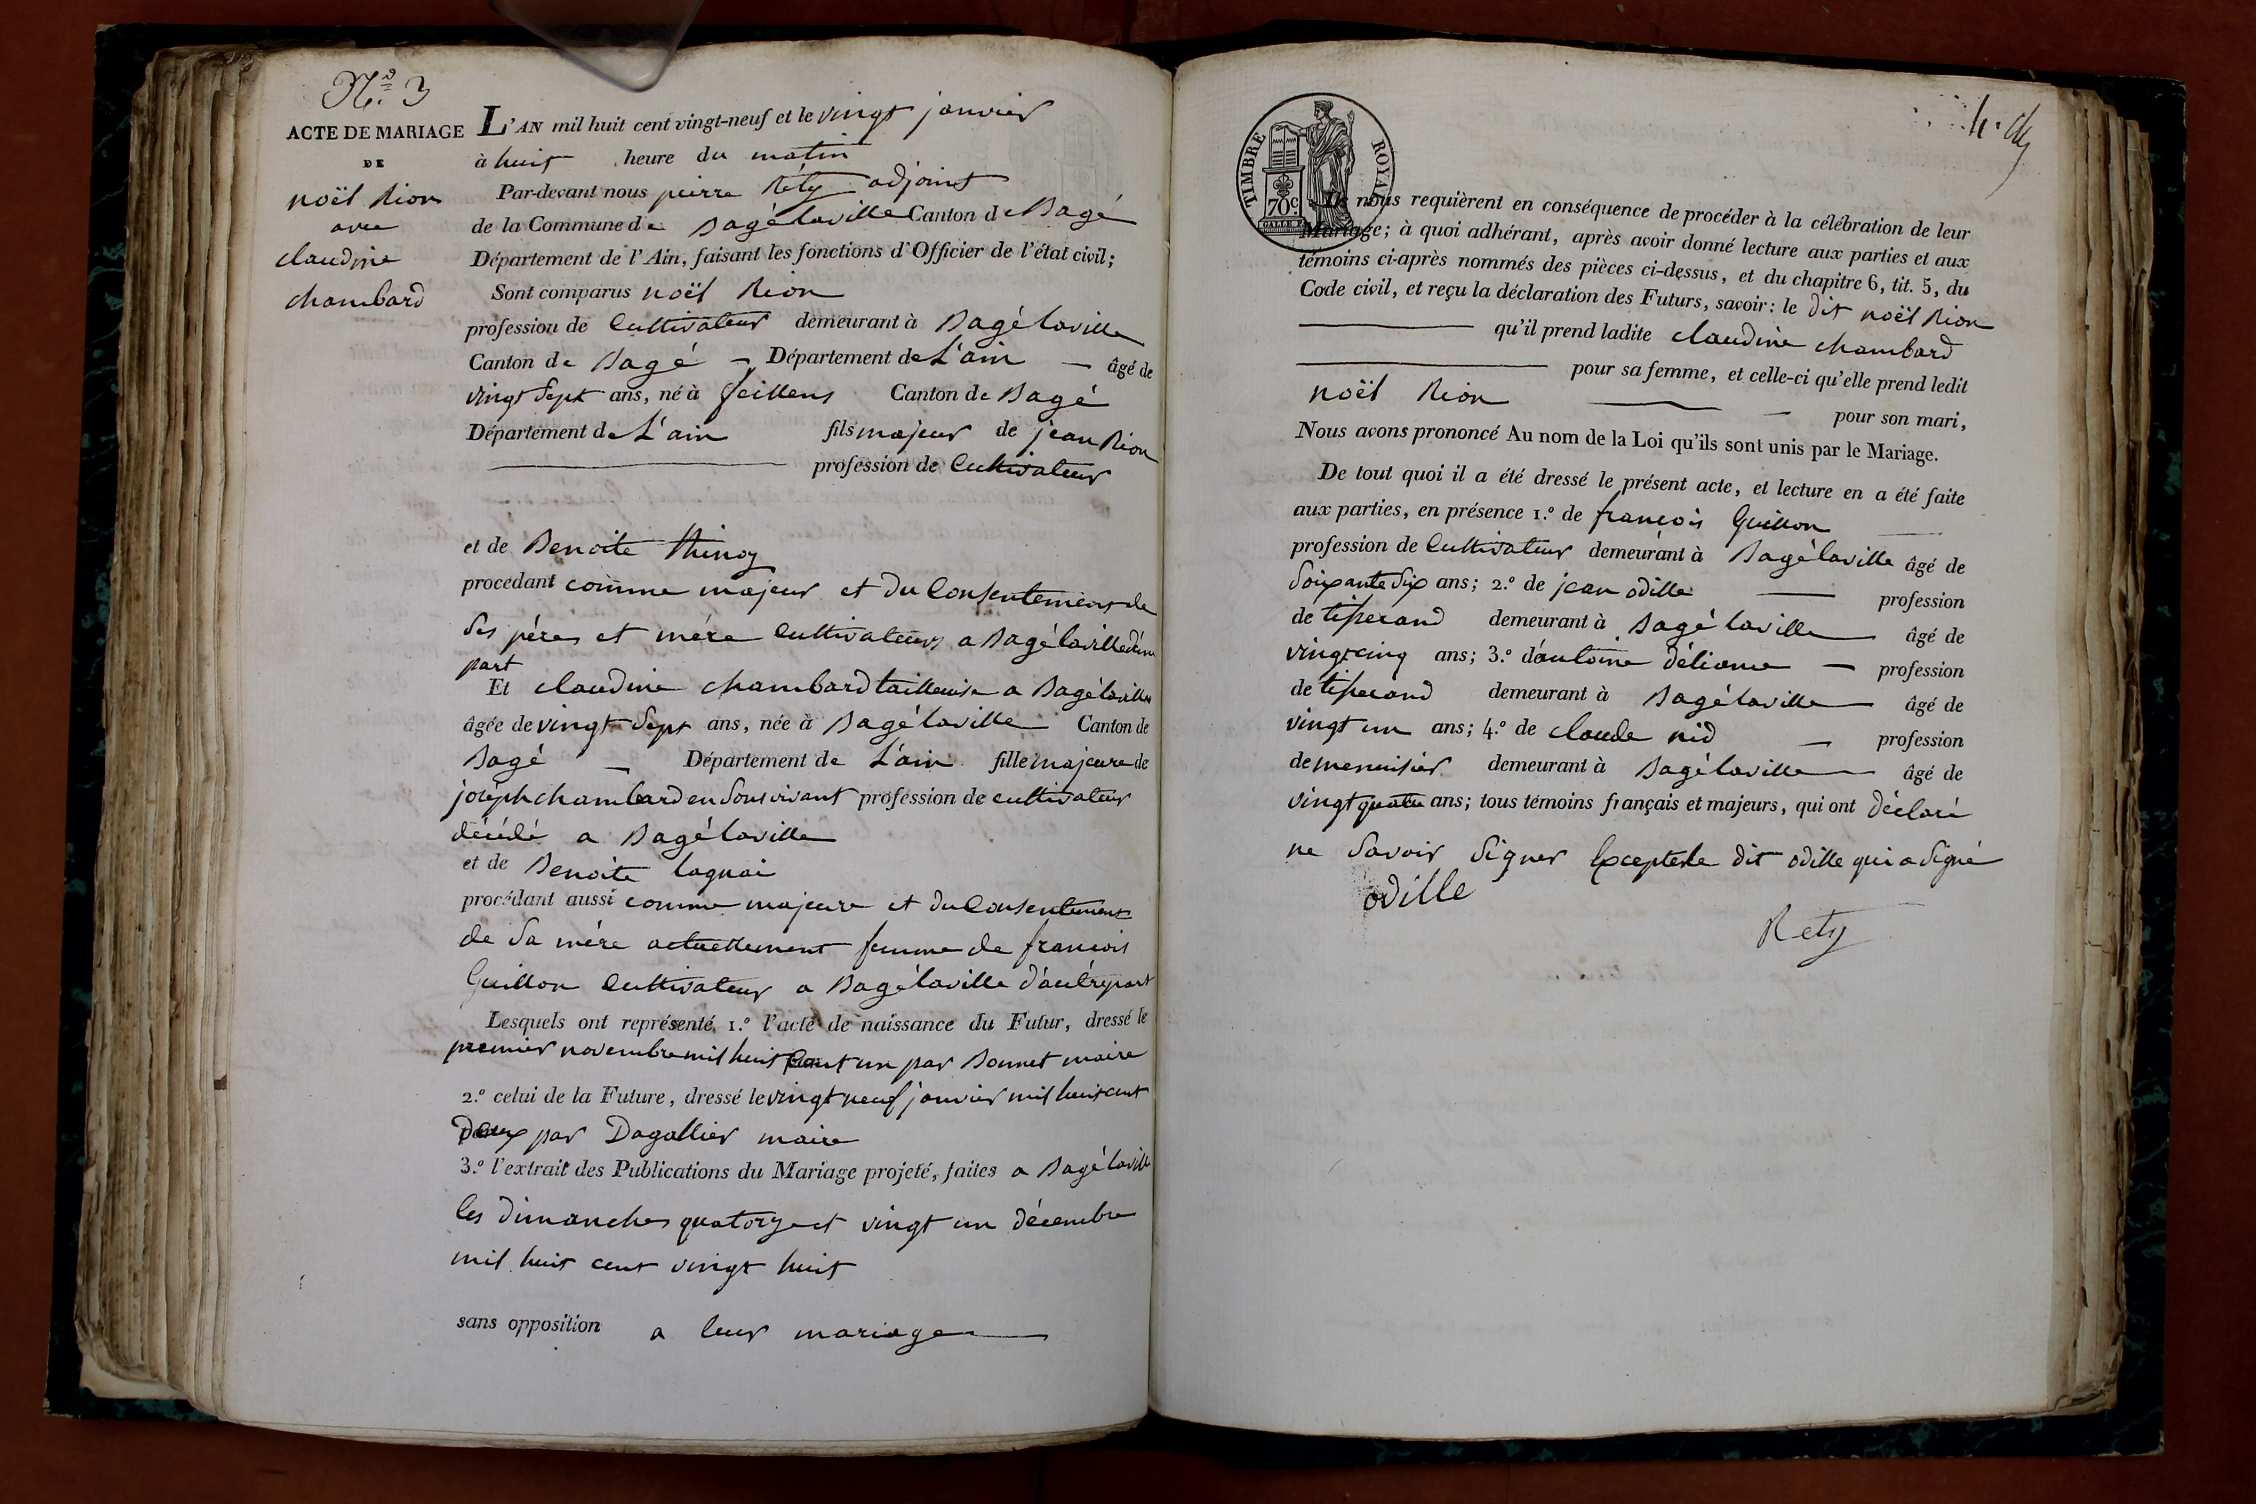 N.o 3
ACTE DE MARIAGE
DE
noël Rion
avec
claudine
chambard
L'AN mil huit cent vingt-neuf et le vingt janvier
à huit heure du matin
Par-devant nous pierre Réty adjoint
de la Commune de Bagé laville Canton de Bagé
Département de l'Ain, faisant les fonctions d'Officier de l'état civil;
Sont comparus noël Rion
profession de Cultivateur demeurant à Bagé laville
Canton de Bagé - Département de L'ain - âgé de
vingt Sept ans, né à feillens Canton de Bagé
Département de L'ain fils majeur de jean Rion
profession de Cultivateur
et de Benoite
procédant comme majeur et du Consentement de
Ses pére et mére Cultivateurs a Bagé laville d'une
part
Et claudine chambard tailleuse a Bagé laville
âgée de vingt Sept ans, née à Bagé laville Canton de
Bagé - Département de L'ain fille majeure de
joseph chambard en Son vivant profession de cultivateur
décédé a Bagé laville
et de Benoite
procédant aussi comme majeure et du Consentement
de Sa mére actuellement femme de francois
Guillon Cultivateur a Bagé laville d'autre part
Lesquels ont représenté, 1.o l'acte de naissance du Futur, dressé le
premier novembre mil huit cent un par Bonnet maire
2.o celui de la Future, dressé le vingt neuf janvier mil huit cent
Deux par Dagallier maire
3.o l'extrait des Publications du Mariage projeté, faites a Bagé laville
les dimanches quatorze et vingt un décembre
mil huit cent vingt huit
sans opposition a leur mariage
TIMBRE ROYAL
70c
nous requièrent en conséquence de procéder à la célébration de leur
Mariage; à quoi adhérant, après avoir donné lecture aux parties et aux
témoins ci-après nommés des pièces ci-dessus, et du chapitre 6, tit. 5, du
Code civil, et reçu la déclaration des Futurs, savoir: le dit noël Rion
qu'il prend ladite claudine chambard
pour sa femme, et celle-ci qu'elle prend ledit
noël Rion - pour son mari,
Nous avons prononcé Au nom de la Loi qu'ils sont unis par le Mariage.
De tout quoi il a été dressé le présent acte, et lecture en a été faite
aux parties, en présence 1.o de francois Guillon
profession de Cultivateur demeurant à Bagé laville âgé de
Soixante Six ans; 2.o de jean odille profession
de tisserand demeurant à Bagé laville âgé de
vingt cinq ans; 3.o d'antoine déliance - profession
de tisserand demeurant à Bagé laville âgé de
vingt un ans; 4.o de claude nid - profession
de menuisier demeurant à Bagé laville âgé de
vingt quatre ans; tous témoins français et majeurs, qui ont déclaré
ne Savoir Signer Excepter le dit odille qui a Signé
odille
Rety